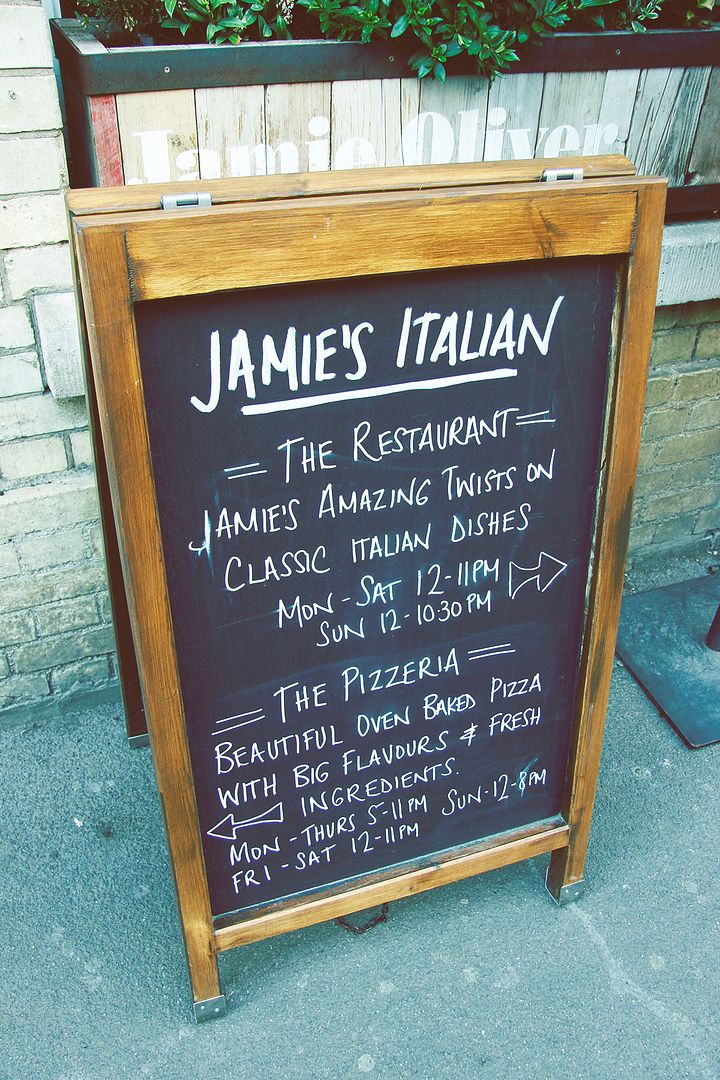 Jamie Oliver
JAMIE'S ITALIAN
THE RESTAURANT
JAMIE'S AMAZING TWISTS ON
CLASSIC ITALIAN DISHES
MON-SAT 12-11PM
SUN 12-10:30PM
THE PIZZERIA
BEAUTIFUL OVEN BAKED PIZZA
WITH BIG FLAVOURS & FRESH
INGREDIENTS.
MON-THURS 5-11PM SUN-12-8PM
FRI-SAT 12-11PM